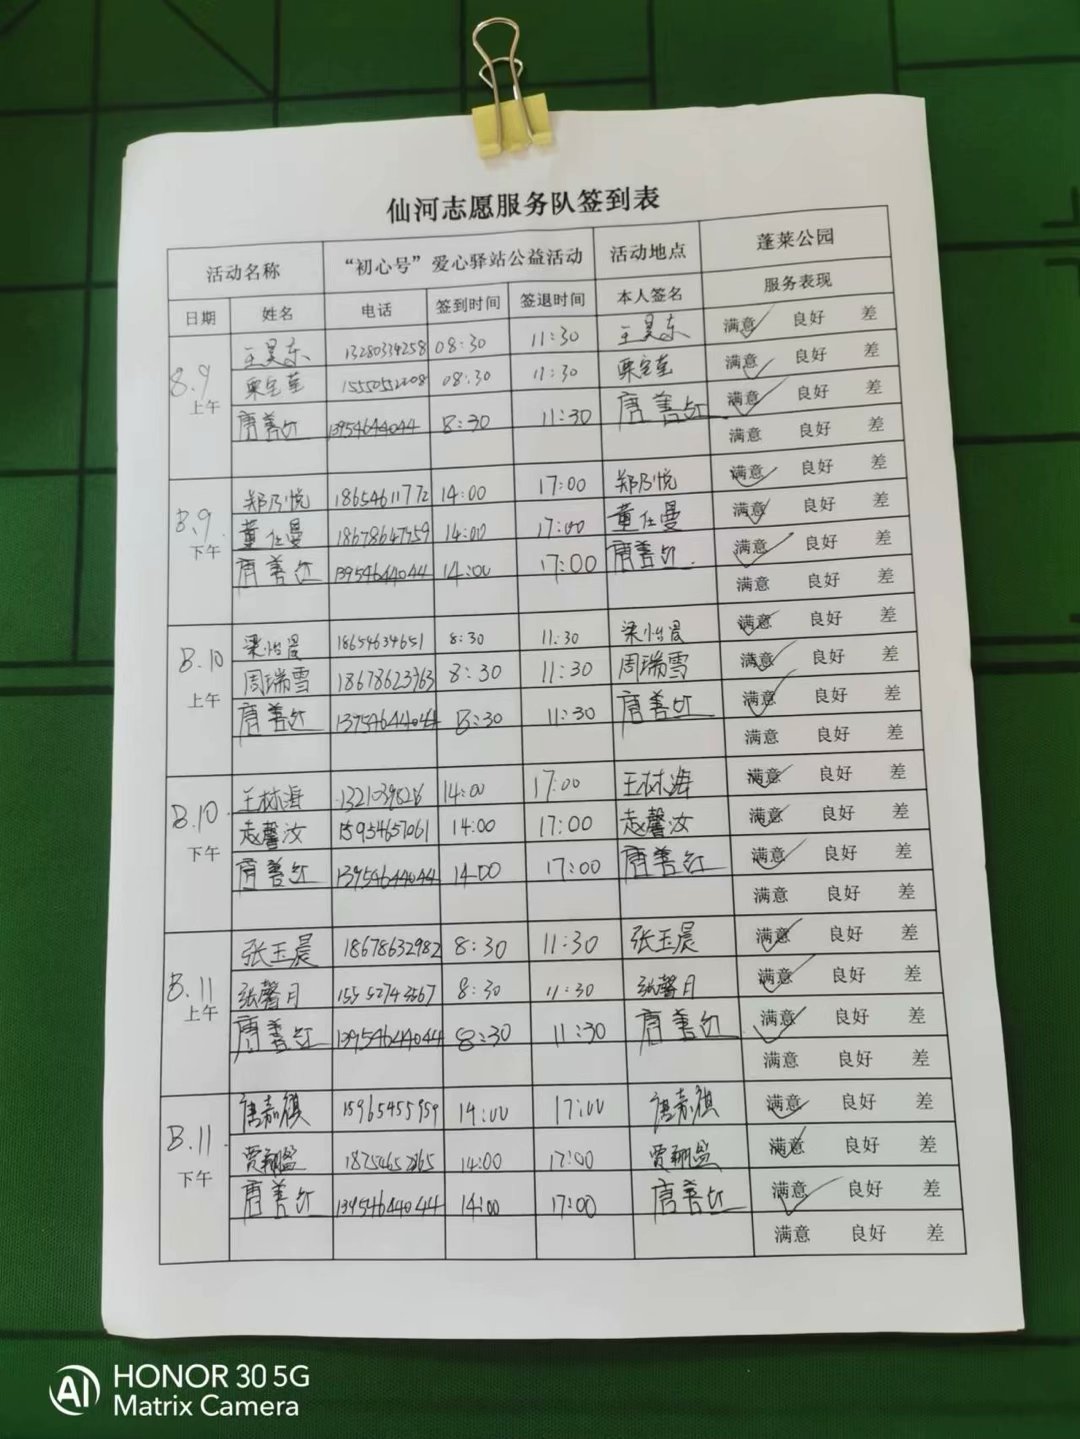 仙河志愿服务队签到表
活动名称 “初心号”爱心驿站公益活动 活动地点 蓬莱公园
日期 姓名 电话 签到时间 签退时间 本人签名 服务表现
8.9 上午 王昊东 13280334258 08:30 11:30 王昊东 满意 良好 差
08:30 11:30 满意 良好 差
唐善红 13954644044 8:30 11:30 唐善红 满意 良好 差
满意 良好 差
8.9. 下午 郑乃悦 18654611772 14:00 17:00 郑乃悦 满意 良好 差
董仕曼 18678647759 14:00 17:00 董仕曼 满意 良好 差
唐善红 13954644044 14:00 17:00 唐善红 满意 良好 差
满意 良好 差
8.10 上午 梁怡晨 18654634651 8:30 11:30 梁怡晨 满意 良好 差
周瑞雪 18678623963 8:30 11:30 周瑞雪 满意 良好 差
唐善红 13954644044 8:30 11:30 唐善红 满意 良好 差
满意 良好 差
8.10. 下午 王林海 14:00 17:00 王林海 满意 良好 差
赵馨汝 15954657061 14:00 17:00 赵馨汝 满意 良好 差
唐善红 13954644044 14:00 17:00 唐善红 满意 良好 差
满意 良好 差
8.11 上午 张玉晨 18678632982 8:30 11:30 张玉晨 满意 良好 差
张馨月 15552743667 8:30 11:30 张馨月 满意 良好 差
唐善红 13954644044 8:30 11:30 唐善红 满意 良好 差
满意 良好 差
8.11. 下午 唐嘉祺 15965455959 14:00 17:00 唐嘉祺 满意 良好 差
14:00 17:00 满意 良好 差
唐善红 13954644044 14:00 17:00 唐善红 满意 良好 差
满意 良好 差
AI HONOR 30 5G
Matrix Camera